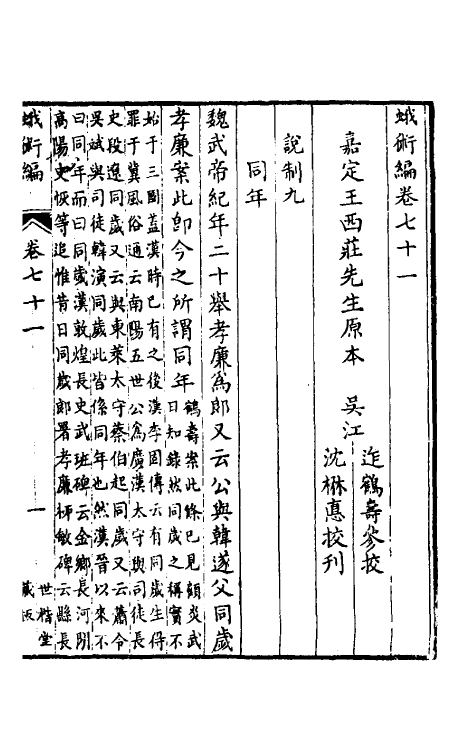 蛾術編卷七十一
嘉定王西莊先生原本　吳江
迮鶴壽參挍
沈楙悳挍刊
說制九
同年
魏武帝紀年二十舉孝廉爲郎又云公與韓遂父同歲
孝廉案此卽今之所謂同年
鶴壽案此條已見顧炎武
日知錄然同歲之稱實不
始于三國蓋漢時已有之後漢李固傳云有同歲生得
罪于冀風俗通云南陽五世公爲廣漢太守與司徒長
史段遼同歲又云與東萊太守蔡伯起同歲又云蕭令
吳斌與司徒韓演同歲此皆係同年也然漢晉以來不
曰同年而曰同歲漢敦煌長史武班碑云金鄉長河閒
高陽史恢等追惟昔日同歲郎署孝廉柳敏碑云縣長
蛾術編
卷七十一
一
世楷堂
藏板